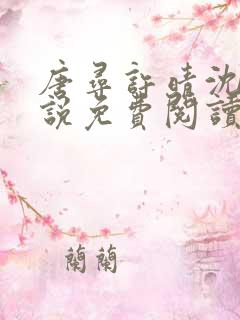 唐尋許晴沈
說免費閱讀
蘭蘭